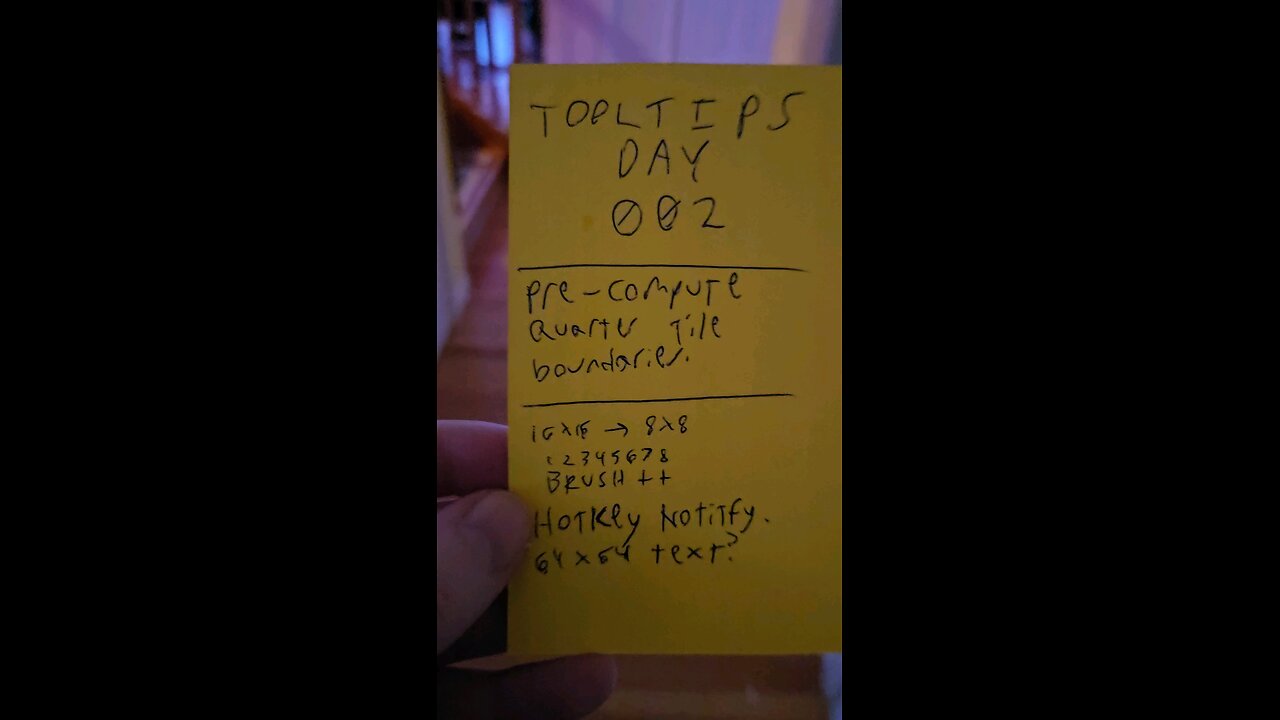 TOOLTIPS
DAY
002
Pre-compute
Quarter Tile
boundaries.
16x16 → 8x8
12345678
BRUSH ++
HOTKEY NOTIFY.
64x64 text?